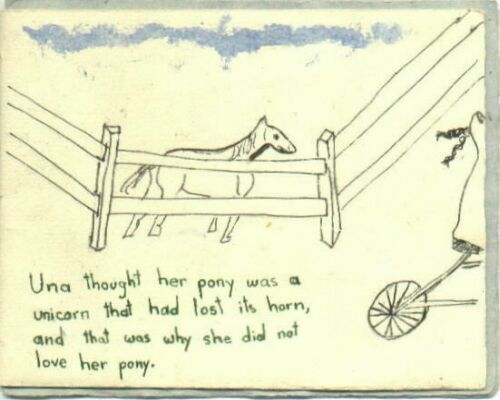 Una thought her pony was a
unicorn that had lost its horn,
and that was why she did not
love her pony.